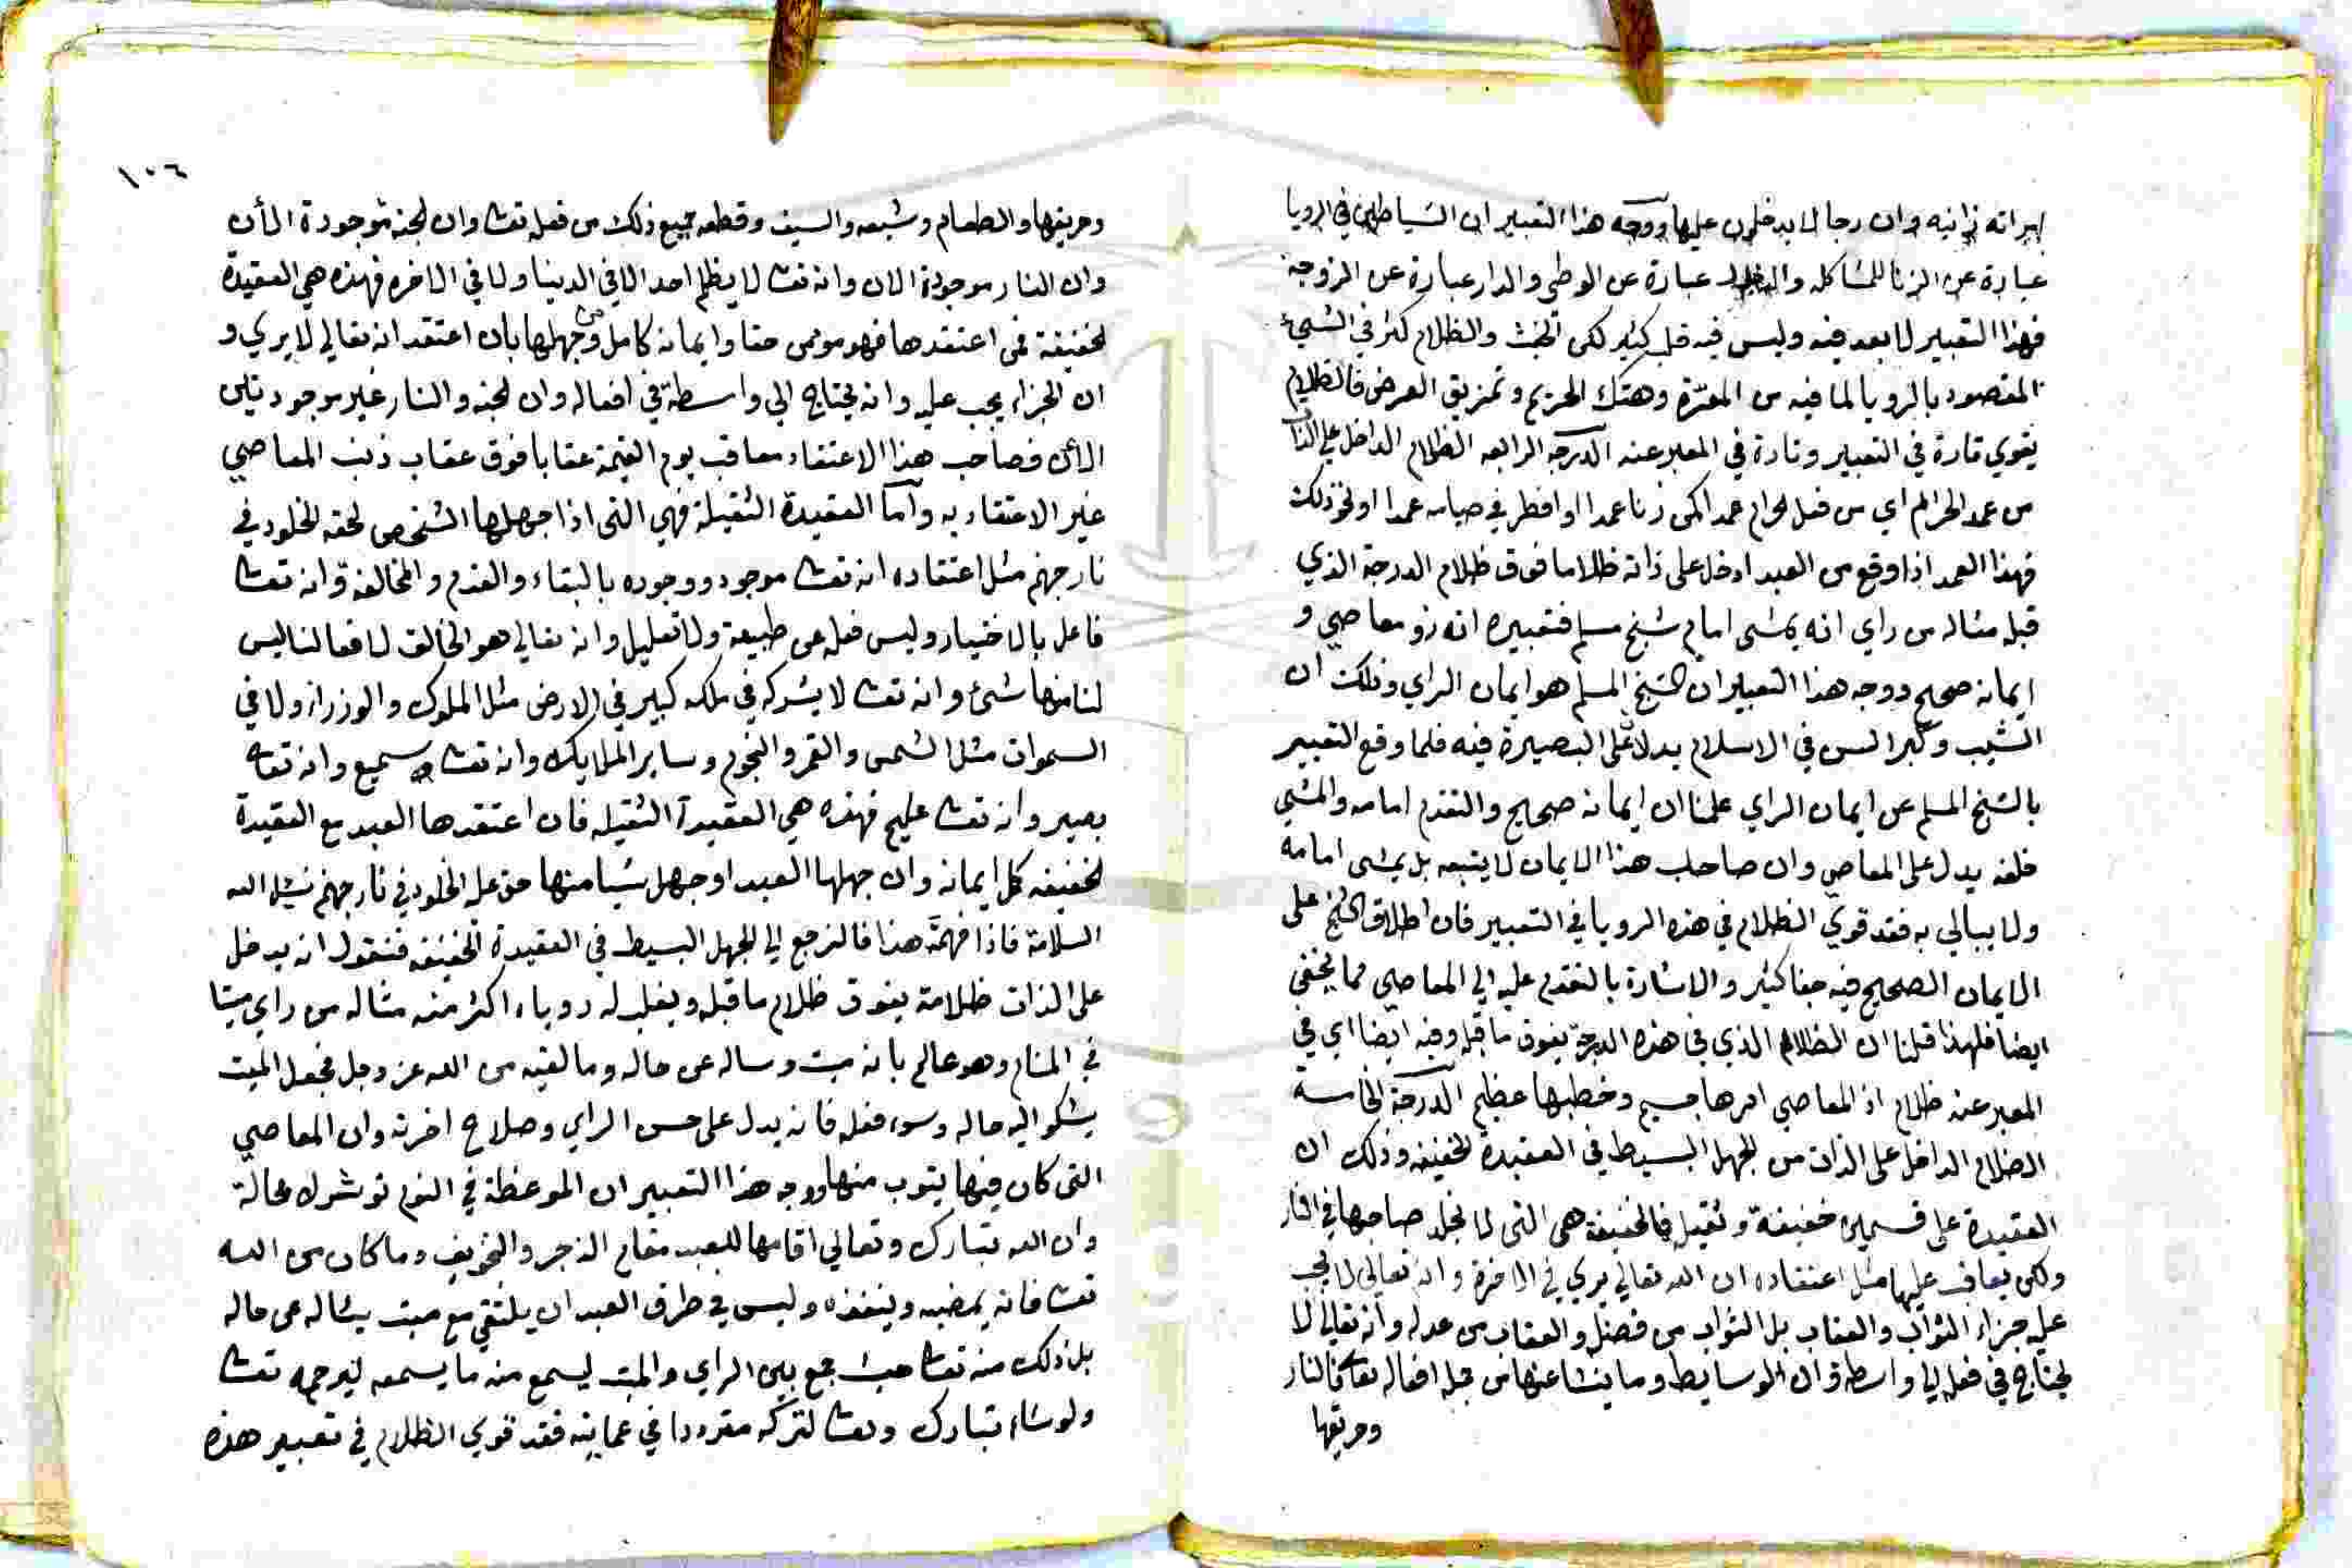 امراته زانيه وان رجالا يدخلون عليها ووجه هذا التعبير ان الشياطين في الرويا
عبارة عن الزنا للمشاكله والدخول عبارة عن الوطي والدار عبارة عن الزوجة
فهذا التعبير لا بعد فيه وليس فيه قلب كثير لكن الخبث والظلام كثر في الشيء
المقصود بالرويا لما فيه من المعرة وهتك الحريم وتمزيق العرض فالظلام
يقوي تارة في التعبير وتارة في المعبر عنه الدرجة الرابعه الظلام الداخل على الذات
من عمد الحرام اي من فعل الحرام عمدا كمن زنا عمدا او افطر في صيامه عمدا او نحو ذلك
فهذا العمد اذا وقع من العبد ادخل على ذاته ظلاما فوق ظلام الدرجة الذي
قبله مثاله من راي انه يمشى امام شيخ مسلم فتعبيره انه ذو معاصي و
ايمانه صحيح ووجه هذا التعبير ان الشيخ المسلم هو ايمان الراي وذلك ان
الشيب وكبر السن في الاسلام يدلان على البصيرة فيه فلما وقع التعبير
بالشيخ المسلم عن ايمان الراي علمنا ان ايمانه صحيح والتقدم امامه والمشي
خلفه يدل على المعاصي وان صاحب هذا الايمان لا يتبعه بل يمشى امامه
ولا يبالي به فقد قوي الظلام في هذه الرويا في التعبير فان اطلاق الشيخ على
الايمان الصحيح فيه خفا كثير والاشارة بالتقدم عليه الي المعاصي مما يخفى
ايضا فلهذا قلنا ان الظلام الذي في هذه الدرجة يفوق ما قبله وفيه ايضا اي في
المعبر عنه ظلام اذ المعاصي امرها جسيم وخطبها عظيم الدرجة الخامسة
الظلام الداخل على الذات من الجهل البسيط في العقيدة الخفيفه وذلك ان
العقيدة على قسمين خفيفة وثقيله فالخفيفة هي التى لا يخلد صاحبها في النار
ولكن يعاقب عليها مثل اعتقاده ان الله تعالي يري في الاخرة وانه تعالي لا يجب
عليه جزاء الثواب والعقاب بل الثواب من فضله والعقاب من عدله وانه تعالي لا
يحتاج في فعله الي واسطة وان الوسايط وما ينشا عنها من جملة افعاله تعالى كالنار
وحريقها
١٠٦
وحريقها والطعام وشبعه والسيف وقطعه جميع ذلك من فعله تعالى وان الجنة موجودة الأن
وان النار موجودة الان وانه تعالى لا يظلم احدا لا في الدينا ولا في الاخره فهذه هي العقيدة
الخفيفة فمن اعتقدها فهو مومن حقا وايمانه كامل ومن جهلها بان اعتقد انه تعالي لا يري و
ان الجزاء يجب عليه وانه يحتاج الي واسطة في افعاله وان الجنه والنار غير موجودتين
الأن فصاحب هذا الاعتقاد معاقب يوم القيمة عقابا فوق عقاب ذنب المعاصي
غير الاعتقاد به واما العقيدة الثقيلة فهي التى اذا جهلها الشخص لحقه الخلود في
نار جهنم مثل اعتقاده انه تعالى موجود ووجوده بالبقاء والقدم والمخالفة وانه تعالى
فاعل بالاختيار وليس فعله عن طبيعة ولا تعليل وانه تعالي هو الخالق لافعالنا ليس
لنا منها شئ وانه تعالى لا يشركه في ملكه كبير في الارض مثل الملوك والوزراء ولا في
السموات مثل الشمس والقمر والنجوم وساير الملايكه وانه تعالى سميع وانه تعالى
بصير وانه تعالى عليم فهذه هي العقيدة الثقيله فان اعتقدها العبد مع العقيدة
الخفيفه كمل ايمانه وان جهلها العبد او جهل شيا منها حق عليه الخلود في نار جهنم نسئل الله
السلامة فاذا فهمت هذا فالنرجع الي الجهل البسيط في العقيدة الخفيفه فنقول انه يدخل
على الذات ظلامة يفوق ظلام ما قبله ويغلب له روياء اكثر منه مثاله من راي ميتا
في المنام وهو عالم بانه ميت وساله عن حاله وما لقيه من الله عز وجل فجعل الميت
يشكو اليه حاله وسوء فعله فانه يدل على حسن الراي وصلاح اخرته وان المعاصي
التى كان فيها يتوب منها ووجه هذا التعبير ان الموعظة في النوم لا محالة
وان الله تبارك وتعالي اقامها للعبد مقام الزجر والتخويف وما كان من الله
تعالى فانه يمضيه وينفذه وليس في طرق العبد ان يلتقي مع ميت يساله عن حاله
بل ذلك منه تعالى حيث جمع بين الراي والميت ليسمع منه ما يسمعه ليرحمه تعالى
ولو شاء تبارك وتعالى لتركه مفردا في عمايته فقد قوي الظلام في تعبير هذه